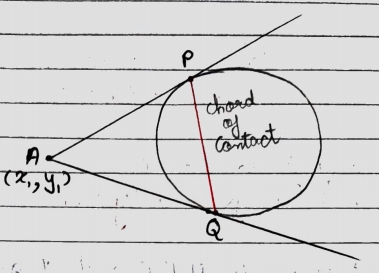 P
chord
of
contact
A
(x₁, y₁)
Q